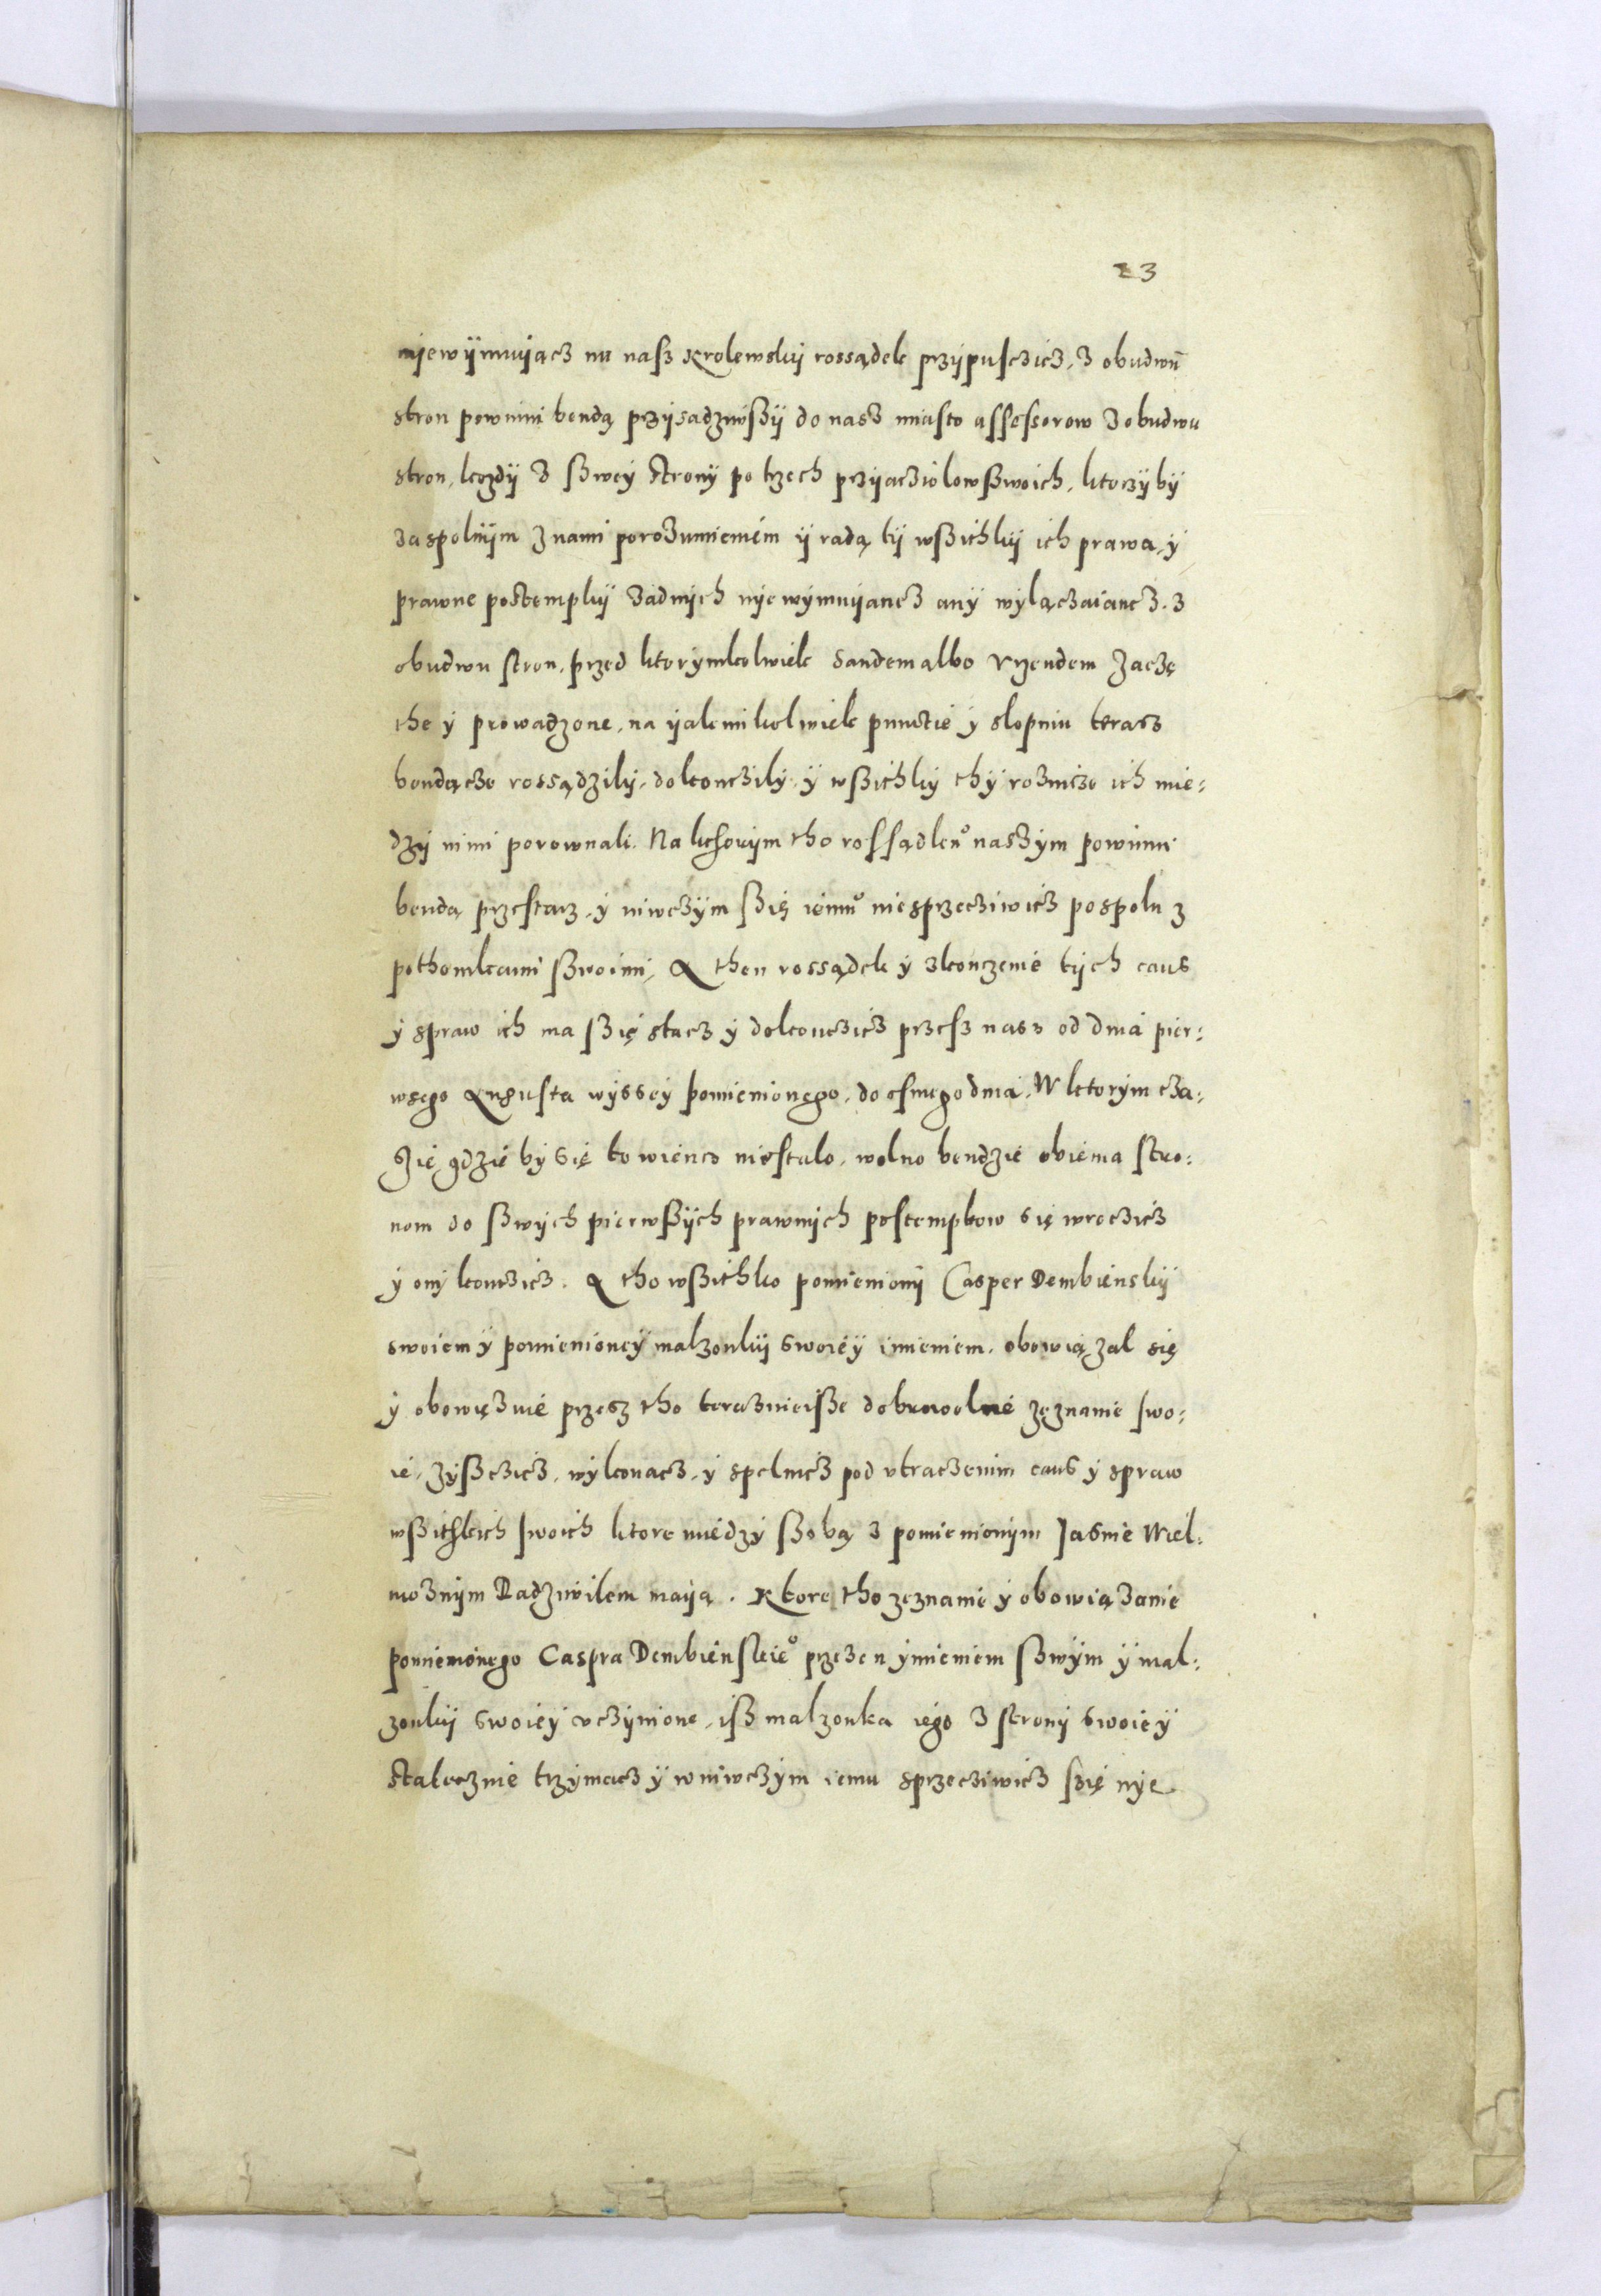 23
nyewÿmuÿącz nu nasz Krolewskÿ rossądek przÿpusczicz, z obudwu
stron powinni bendą przÿsadziwszÿ do nasz miasto assessorow z obudwu
stron, kozdÿ z szweÿ stronÿ po trzech przÿacziolow szwoich, ktorzÿ bÿ
za spolnÿm z nami porozumieniem ÿ radą tÿ wszitkÿ ich prawa, ÿ
prawne postempkÿ zadnÿch nye wÿmuÿancz anÿ wÿlączaiancz. z
obudwu stron, przed ktorÿmkolwiek sandem albo Vrzendem zaczę
the ÿ prowadzone, na ÿakemikolwiek punctie ÿ stopniu terasz
bendącze rossądzilÿ, dokonczilÿ, ÿ wszithkÿ thÿ roznicze ich mie:
dzÿ nimi porownali. Na kthorÿm tho rossądku naszÿm powinni
bendą przestacz, ÿ niwczÿm szię iemu niesprzecziwicz pospolu z
pothomkami szwoimi, A then rossądek ÿ skonczenie tÿch caus
ÿ spraw ich ma szię stacz ÿ dokonczicz przesz nasz od dnia pier:
wsego Augusta wÿsseÿ pomienionego, do osmego dnia. W ktorÿm cza:
szie gdzie bÿ się to wiencz niestalo, wolno bendzie obiema stro:
nom do szwÿch pierwszÿch prawnÿch postempkow się wroczicz
ÿ onÿ konczicz. A tho wszithko pomienionÿ Casper Dembienskÿ
swoiem ÿ pomienioneÿ malzonkÿ swoieÿ imieniem, obowiązal się
ÿ obowięzuie przesz tho terazniejsze dobrwoolne zeznanie swo:
ie, zÿszczicz, wÿkonacz, ÿ spelnicz pod vtraczenim caus ÿ spraw
wszithkich swoich ktore miedzÿ szobą z pomienionÿm Jasnie Wiel:
moznÿm Radziwilem maÿą. Ktore tho zeznanie ÿ obowiązanie
pomienionego Caspra Dembienskieo przezen ÿmieniem szwÿm ÿ mal:
zonkÿ swoieÿ vczÿnione, isz malzonka iego z stronÿ swoieÿ
statecznie trzÿmacz ÿ w niwczÿm iemu sprzecziwicz szię nÿe